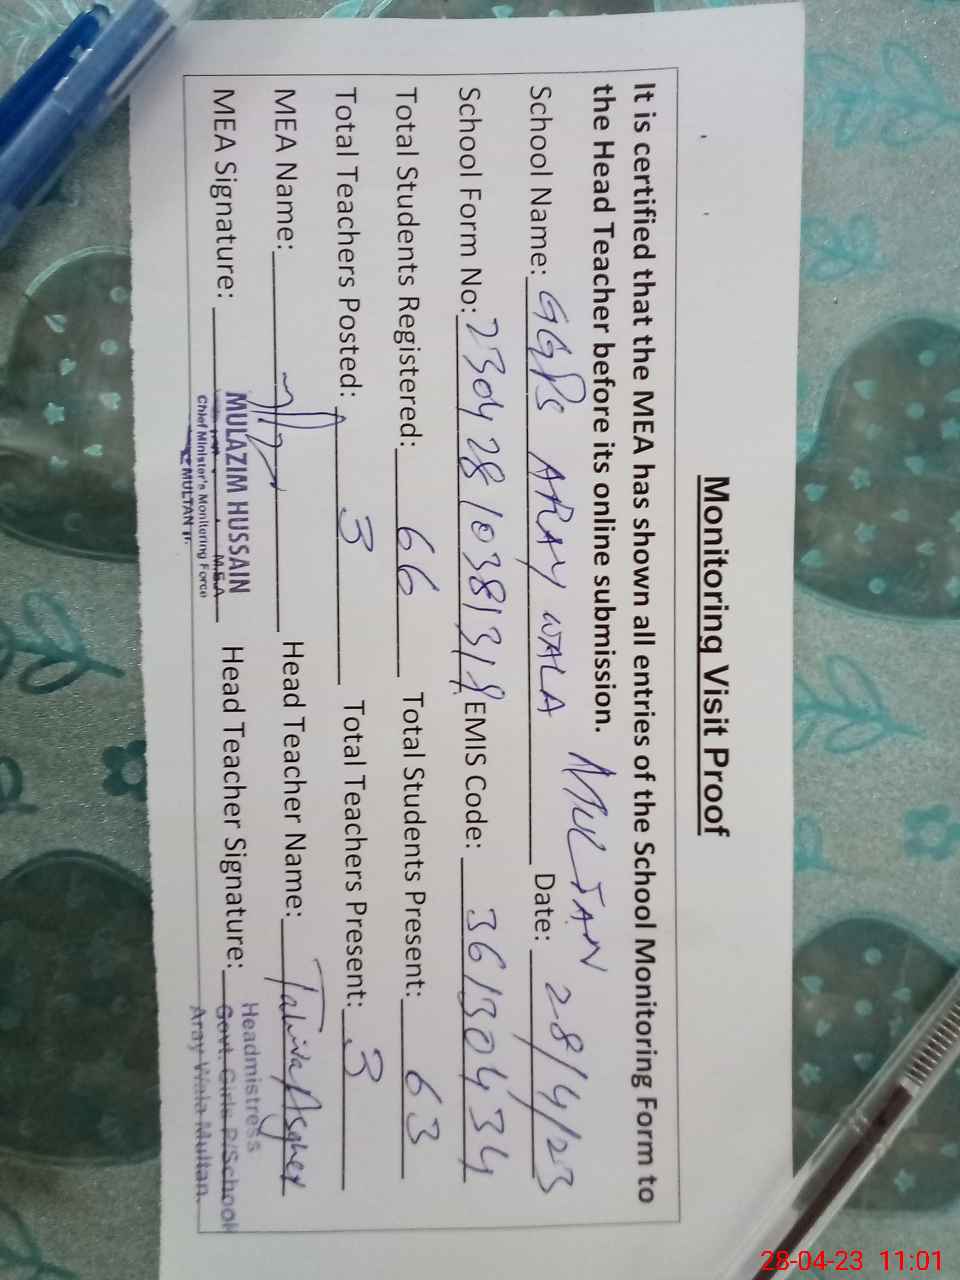 Monitoring Visit Proof
It is certified that the MEA has shown all entries of the School Monitoring Form to
the Head Teacher before its online submission. MULTAN
School Name: GGPS ARAY WALA Date: 28/4/23
School Form No: 23042810381318 EMIS Code: 36130434
Total Students Registered: 66 Total Students Present: 63
Total Teachers Posted: 3 Total Teachers Present: 3
MEA Name: Head Teacher Name: Tahira Asghar
MEA Signature: MULAZIM HUSSAIN Head Teacher Signature: Headmistress
M.E.A Govt. Girls P/School
Chief Minister's Monitering Force Aray Wala Multan.
MULTAN
28-04-23 11:01